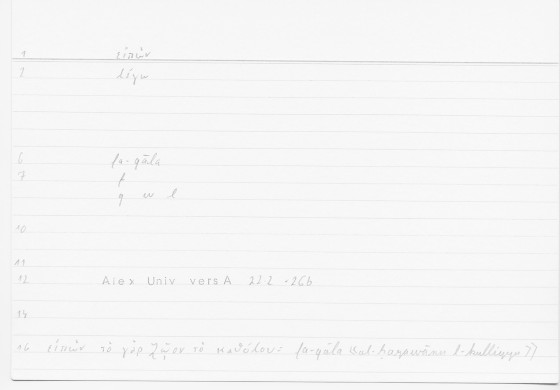 1 εἰπών
2 λέγω
6 fa-qāla
7 f
q w l
10
11
12 Alex Univ vers A 232 -26b
14
16 εἰπὼν τὸ γὰρ ζῷον τὸ καθόλου = fa-qāla l-kulliyya